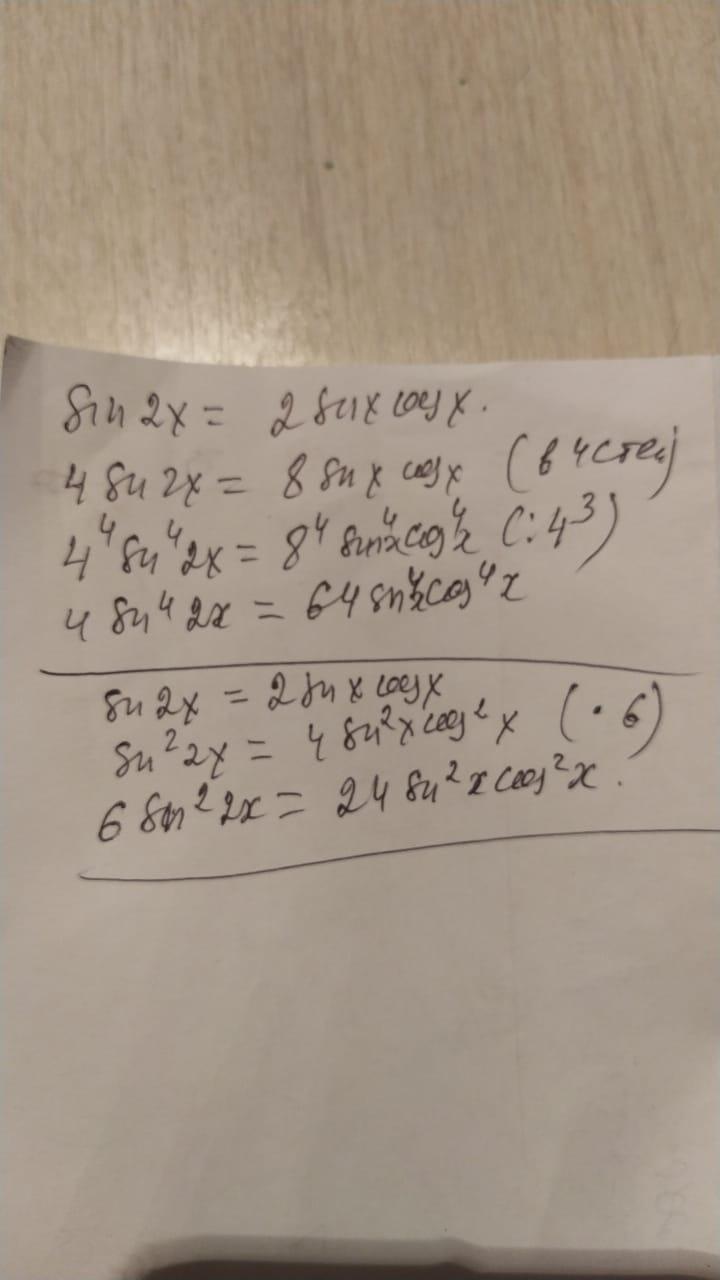 sin 2x = 2 sin x cos x.
4 sin 2x = 8 sin x cos x (в 4 степ)
4⁴ sin⁴ 2x = 8⁴ sin⁴x cos⁴x (: 4³)
4 sin⁴ 2x = 64 sin⁴x cos⁴ x
sin 2x = 2 sin x cos x
sin² 2x = 4 sin² x cos² x (· 6)
6 sin² 2x = 24 sin² x cos² x.